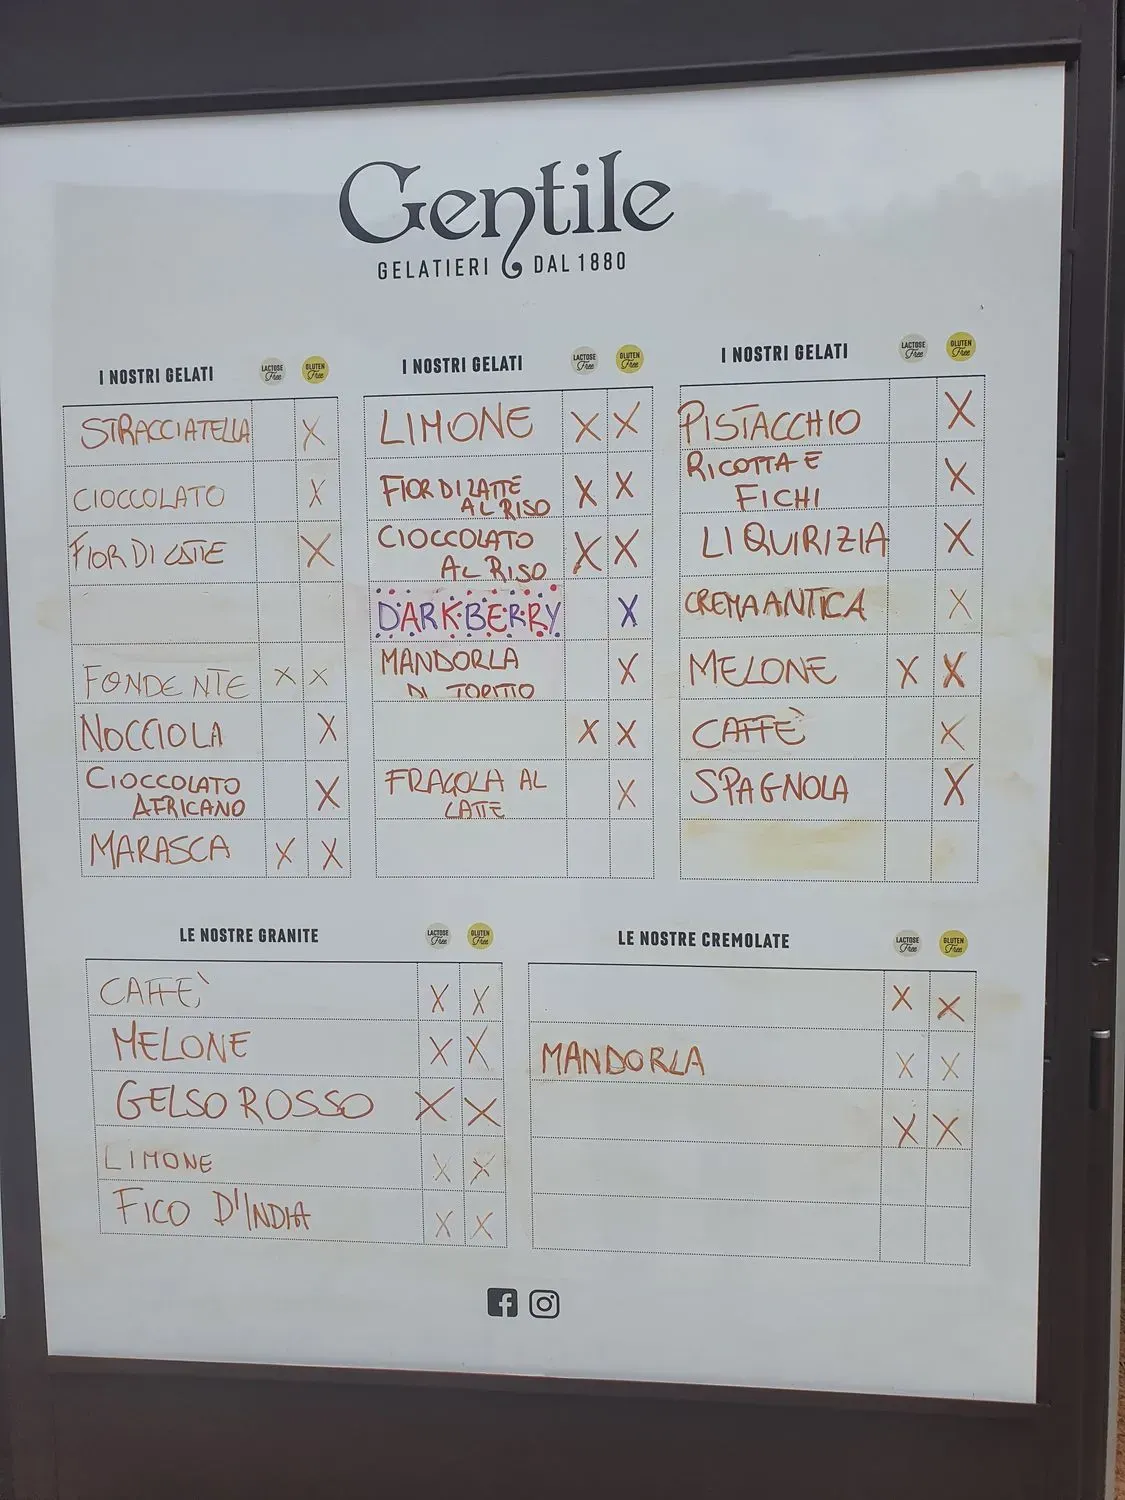 Gentile
GELATIERI DAL 1880
I NOSTRI GELATI LACTOSE Free GLUTEN Free
STRACCIATELLA X
CIOCCOLATO X
FIOR DI LATTE X
FONDENTE X X
NOCCIOLA X
CIOCCOLATO
AFRICANO X
MARASCA X X
I NOSTRI GELATI LACTOSE Free GLUTEN Free
LIMONE X X
FIOR DI LATTE
AL RISO X X
CIOCCOLATO
AL RISO X X
DARKBERRY X
MANDORLA
DI TORITTO X
X X
FRAGOLA AL
LATTE X
I NOSTRI GELATI LACTOSE Free GLUTEN Free
PISTACCHIO X
RICOTTA E
FICHI X
LIQUIRIZIA X
CREMA ANTICA X
MELONE X X
CAFFÈ X
SPAGNOLA X
LE NOSTRE GRANITE LACTOSE Free GLUTEN Free
CAFFÈ X X
MELONE X X
GELSO ROSSO X X
LIMONE X X
FICO D'INDIA X X
LE NOSTRE CREMOLATE LACTOSE Free GLUTEN Free
X X
MANDORLA X X
X X